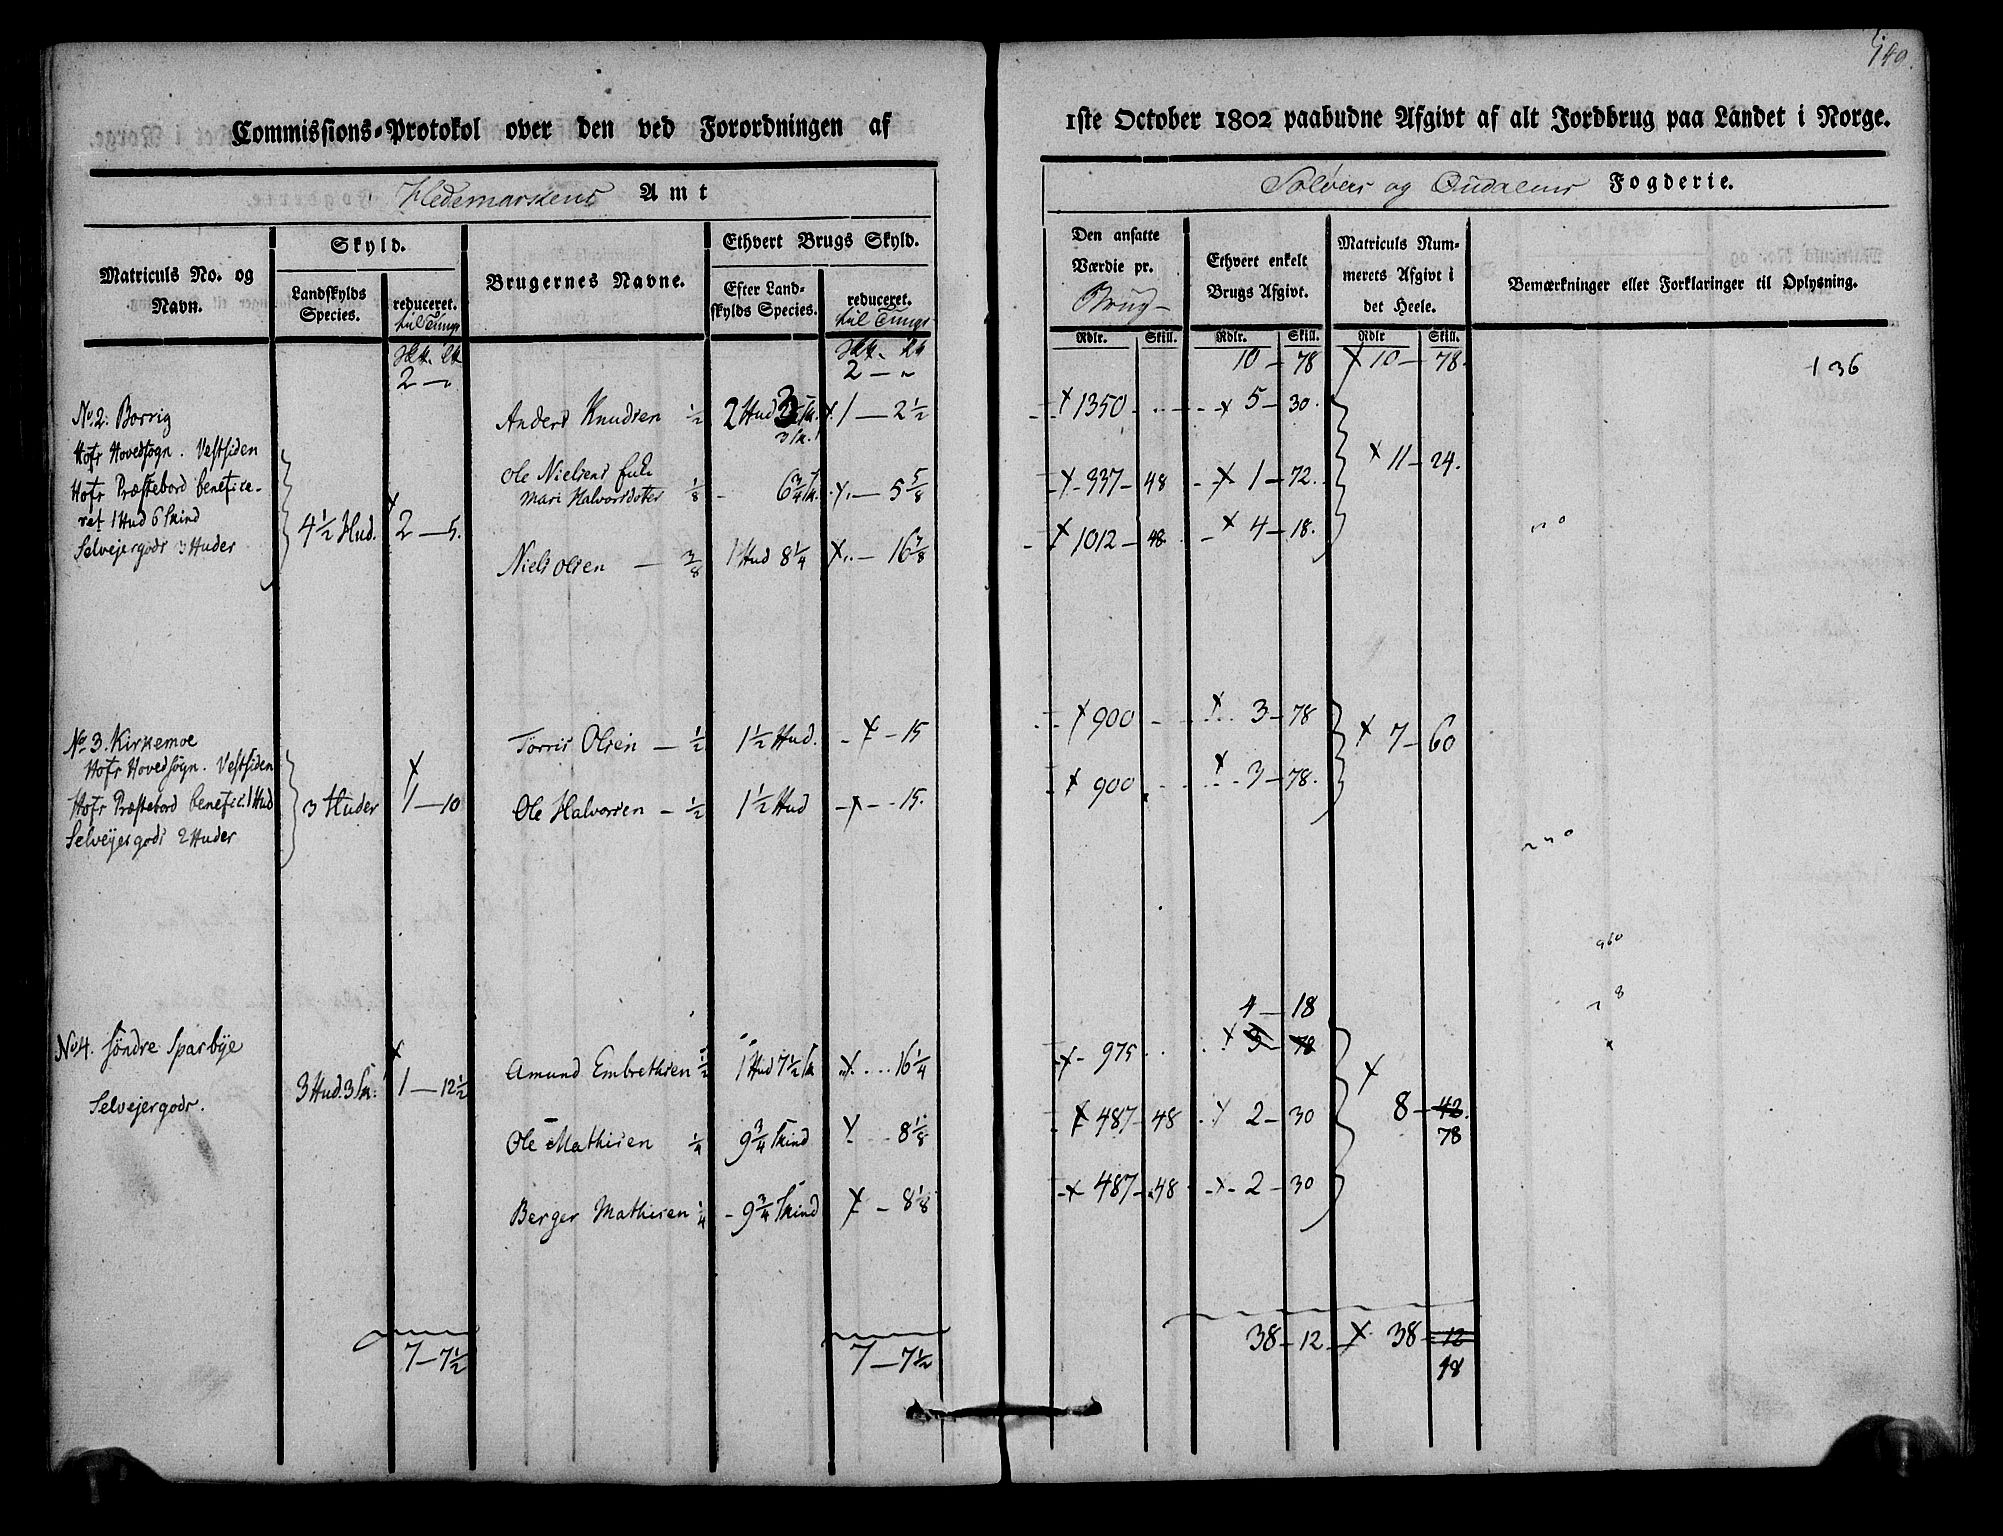 140.
Commissions-Protokol over den ved Forordningen af 1ste October 1802 paabudne Afgivt af alt Jordbrug paa Landet i Norge.
Hedemarkens Amt
Soløers og Oudalens Fogderie.
Matriculs No. og Navn.
Skyld.
Landskylds Species.
reduceret. til Tunge
Brugernes Navne.
Ethvert Brugs Skyld.
Efter Landskylds Species.
reduceret. til Tunge
Den ansatte Værdie pr. Brug
Ethvert enkelt Brugs Afgivt.
Matriculs Nummerets Afgivt i det Heele.
Bemærkninger eller Forklaringer til Oplysning.
Rdlr. Skill. Rdlr. Skill. Rdlr Skill.
2 — 2 — 10 — 78 x 10 — 78. 136
No. 2. Borrig
Hofs Hovedsogn. Vestsiden
Hofs Præstebord benefice-
ret 1 Hud 6 Skind
Selvejergods 3 Huder
4½ Hud. x 2 — 5.
Anders Knudsen ½ 2 Hud 3 x 1 — 2½ x 1350 x 5 — 30.
Ole Nielsens
Mari Halvorsdotter ⅛ 6¾ x — 5⅝ x 337 — 48 x 1 — 72. x 11 — 24.
Niels Olsen — ⅜ 1 Hud 8¼ x — 16⅞ x 1012 — 48 x 4 — 18.
No. 3. Kirkemoe
Hofs Hovedsogn. Vestsiden
Hofs Præstebord benefic. 1 Hud
Selveyergods 2 Huder
3 Huder x 1 — 10
Torris Olsen — ½ 1½ Hud. x — 15 x 900 x 3 — 78 x 7 — 60
Ole Halvorsen — ½ 1½ Hud x — 15. x 900 x 3 — 78.
960
No 4. Søndre Sparbye
Selvejergods.
3 Hud. 3 Sk. x 1 — 12½
4 — 18
Amund Embrethsen ½ 1 Hud 7½ Sk x 16¼ x 975 x 3 — 78
Ole Mathisen ¼ 9¾ Skind x 8⅛ x 487 — 48 x 2 — 30 x 8 — 42.
78
Berger Mathisen ¼ 9¾ Skind x — 8⅛ x 487 — 48 x 2 — 30
7 — 7½ 7 — 7½ 38 — 12 x 38 — 12
48